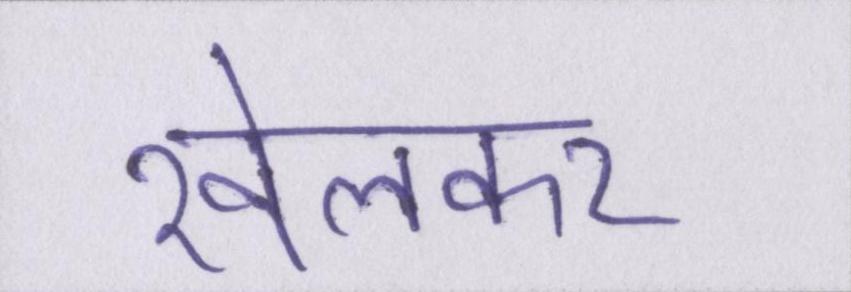 खेलकर